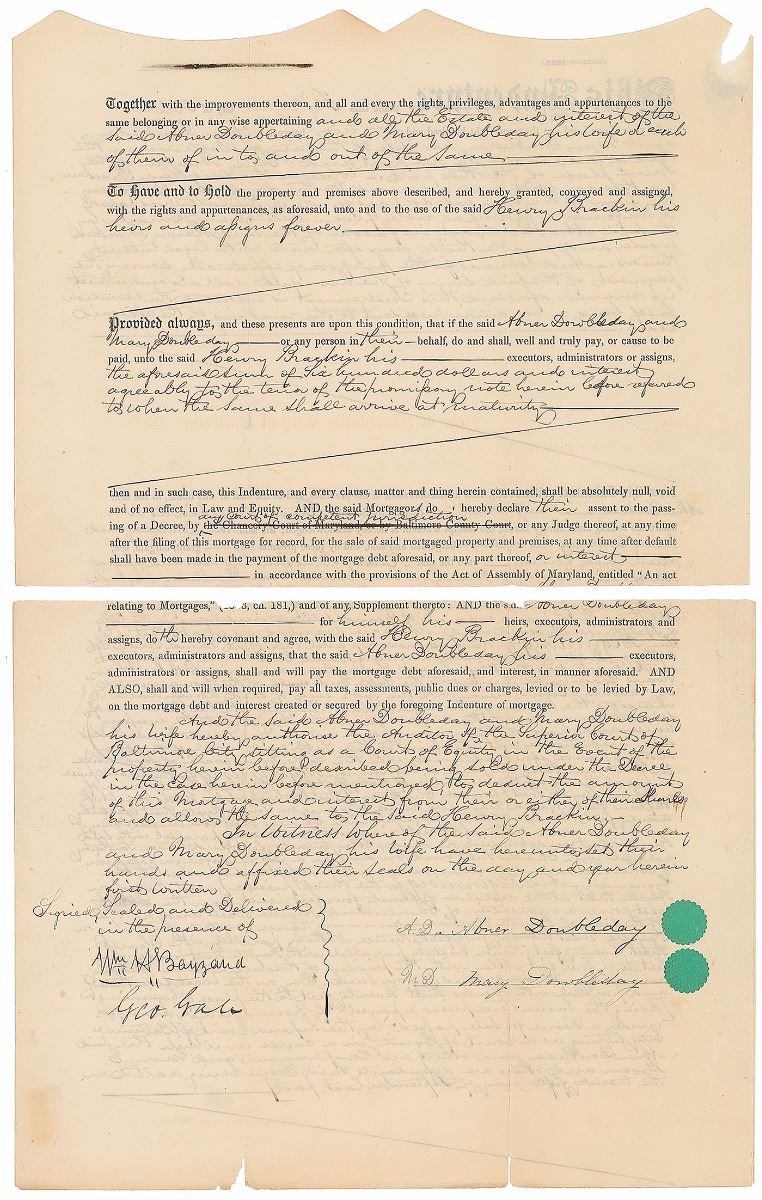 Together with the improvements thereon, and all and every the rights, privileges, advantages and appurtenances to the
same belonging or in any wise appertaining and all the Estate and interest of the
said Abner Doubleday and Mary Doubleday his wife & each
of them of in to and out of the same
To Have and to Hold the property and premises above described, and hereby granted, conveyed and assigned,
with the rights and appurtenances, as aforesaid, unto and to the use of the said Henry Brackin his
heirs and assigns forever
Provided always, and these presents are upon this condition, that if the said Abner Doubleday and
Mary Doubleday or any person in their behalf, do and shall, well and truly pay, or cause to be
paid, unto the said Henry Brackin his executors, administrators or assigns,
the aforesaid sum of Six hundred dollars and interest
agreeably to the tenor of the promissory note herein before refered
to when the same shall arrive at maturity
then and in such case, this Indenture, and every clause, matter and thing herein contained, shall be absolutely null, void
and of no effect, in Law and Equity. AND the said Mortgagors do hereby declare their assent to the pass-
any Court of competent jurisdiction
ing of a Decree, by the Chancery Court of Maryland, or by Baltimore County Court, or any Judge thereof, at any time
after the filing of this mortgage for record, for the sale of said mortgaged property and premises, at any time after default
shall have been made in the payment of the mortgage debt aforesaid, or any part thereof, or interest
in accordance with the provisions of the Act of Assembly of Maryland, entitled "An act
relating to Mortgages," ch. 181,) and of any Supplement thereto: AND the Abner Doubleday
for himself his heirs, executors, administrators and
assigns, doth hereby covenant and agree, with the said Henry Brackin his
executors, administrators and assigns, that the said Abner Doubleday his executors,
administrators or assigns, shall and will pay the mortgage debt aforesaid, and interest, in manner aforesaid. AND
ALSO, shall and will when required, pay all taxes, assessments, public dues or charges, levied or to be levied by Law,
on the mortgage debt and interest created or secured by the foregoing Indenture of mortgage.
And the said Abner Doubleday and Mary Doubleday
his wife hereby authorise the Auditor of the Superior Court of
Baltimore City sitting as a Court of Equity in the Event of the
property herein before described being sold under the Decree
in the case herein before mentioned, to deduct the amount
of this Mortgage and interest from their or either of their shares
and allow the same to the said Henry Brackin,
In Witness Whereof the said Abner Doubleday
and Mary Doubleday his wife have hereunto set their
hands and affixed their seals on the day and year herein
first written
Signed, Sealed and Delivered
in the presence of
A.D. Abner Doubleday
Wm H Bayzand
M D. Mary Doubleday
Geo. Gale